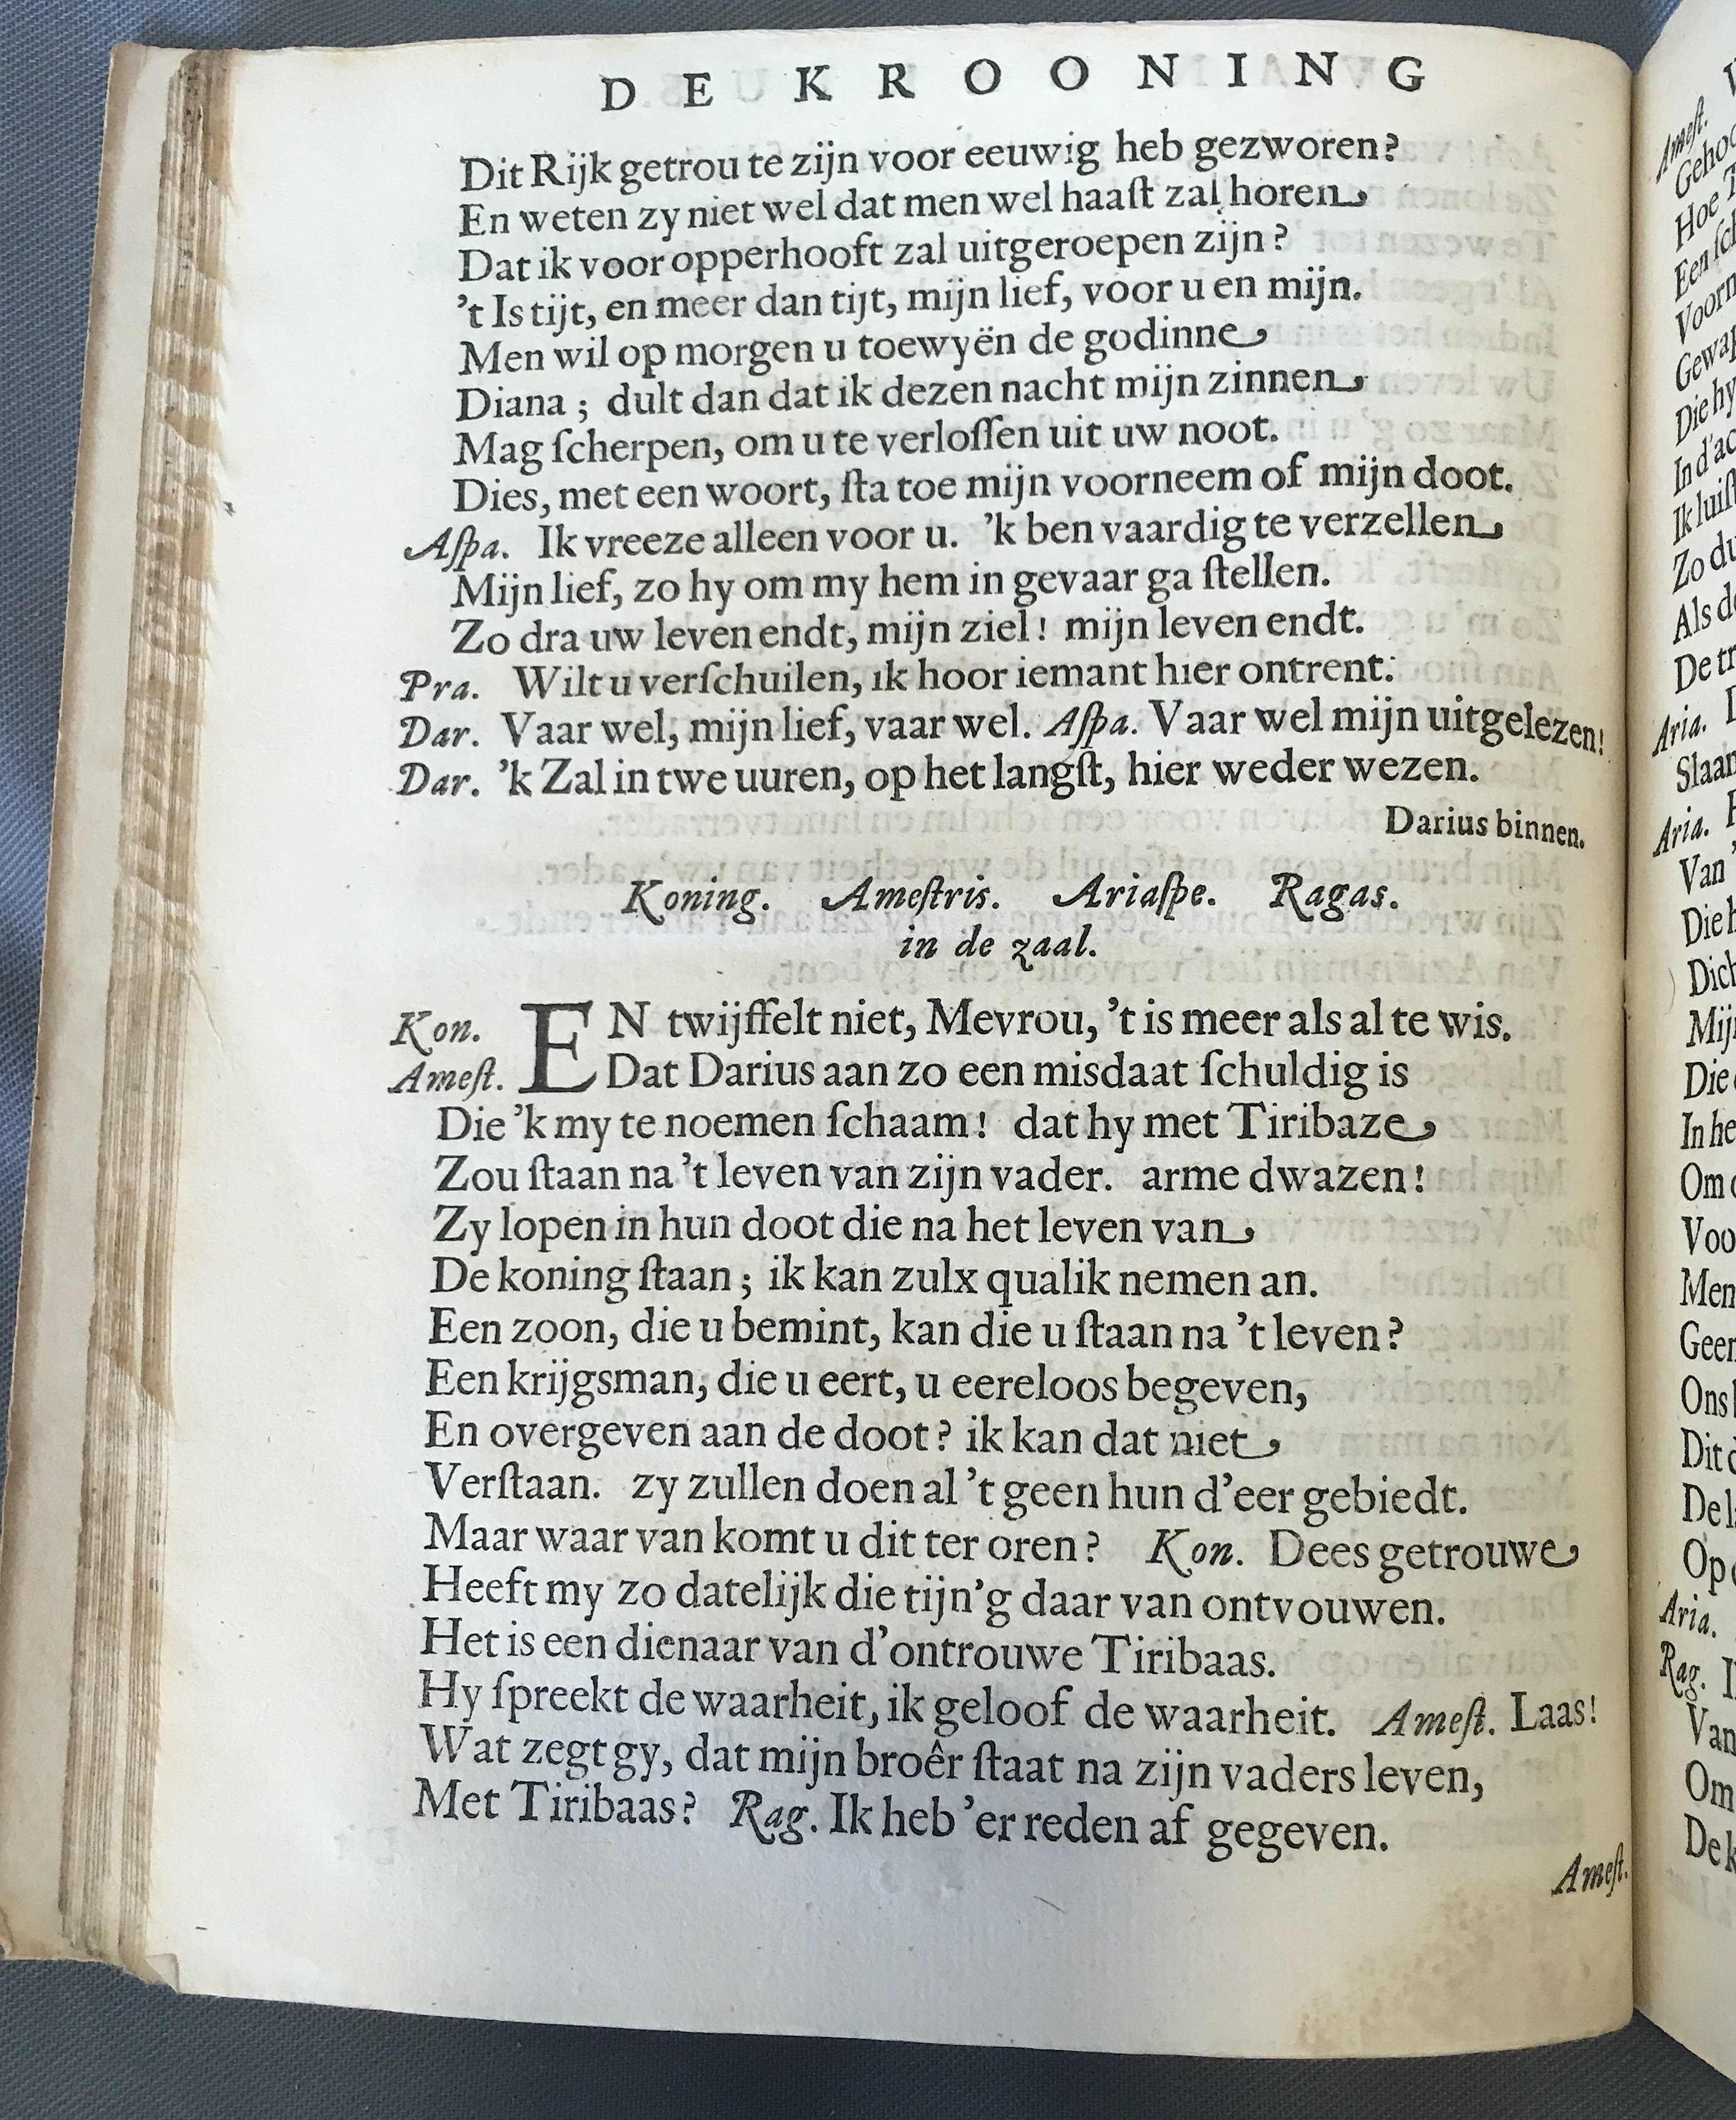 DE KROONING
Dit Rijk getrou te zijn voor eeuwig heb gezworen?
En weten zy niet wel dat men wel haaſt zal horen
Dat ik voor opperhooft zal uitgeroepen zijn?
't Is tijt, en meer dan tijt, mijn lief, voor u en mijn.
Men wil op morgen u toewyën de godinne
Diana; dult dan dat ik dezen nacht mijn zinnen
Mag ſcherpen, om u te verloſſen uit uw noot.
Dies, met een woort, ſta toe mijn voorneem of mijn doot.
Aſpa. Ik vreeze alleen voor u. 'k ben vaardig te verzellen
Mijn lief, zo hy om my hem in gevaar ga ſtellen.
Zo dra uw leven endt, mijn ziel! mijn leven endt.
Pra. Wilt u verſchuilen, ik hoor iemant hier ontrent.
Dar. Vaar wel, mijn lief, vaar wel. Aſpa. Vaar wel mijn uitgelezen!
Dar. 'k Zal in twe uuren, op het langſt, hier weder wezen.
Darius binnen.
Koning. Ameſtris. Ariaſpe. Ragas.
in de zaal.
Kon. EN twijffelt niet, Mevrou, 't is meer als al te wis.
Ameſt. Dat Darius aan zo een misdaat ſchuldig is
Die 'k my te noemen ſchaam! dat hy met Tiribaze
Zou ſtaan na 't leven van zijn vader. arme dwazen!
Zy lopen in hun doot die na het leven van
De koning ſtaan; ik kan zulx qualik nemen an.
Een zoon, die u bemint, kan die u ſtaan na 't leven?
Een krijgsman, die u eert, u eereloos begeven,
En overgeven aan de doot? ik kan dat niet
Verſtaan. zy zullen doen al 't geen hun d'eer gebiedt.
Maar waar van komt u dit ter oren? Kon. Dees getrouwe
Heeft my zo datelijk die tijn'g daar van ontvouwen.
Het is een dienaar van d'ontrouwe Tiribaas.
Hy ſpreekt de waarheit, ik geloof de waarheit. Ameſt. Laas!
Wat zegt gy, dat mijn broêr ſtaat na zijn vaders leven,
Met Tiribaas? Rag. Ik heb 'er reden af gegeven.
Ameſt.
Ameſt.
Hoe
Zo
Aria.
Aria.
Van
Mij
Die
In he
Voo
Men
Geer
Ons
Op
Aria.
Rag.
Van
Om